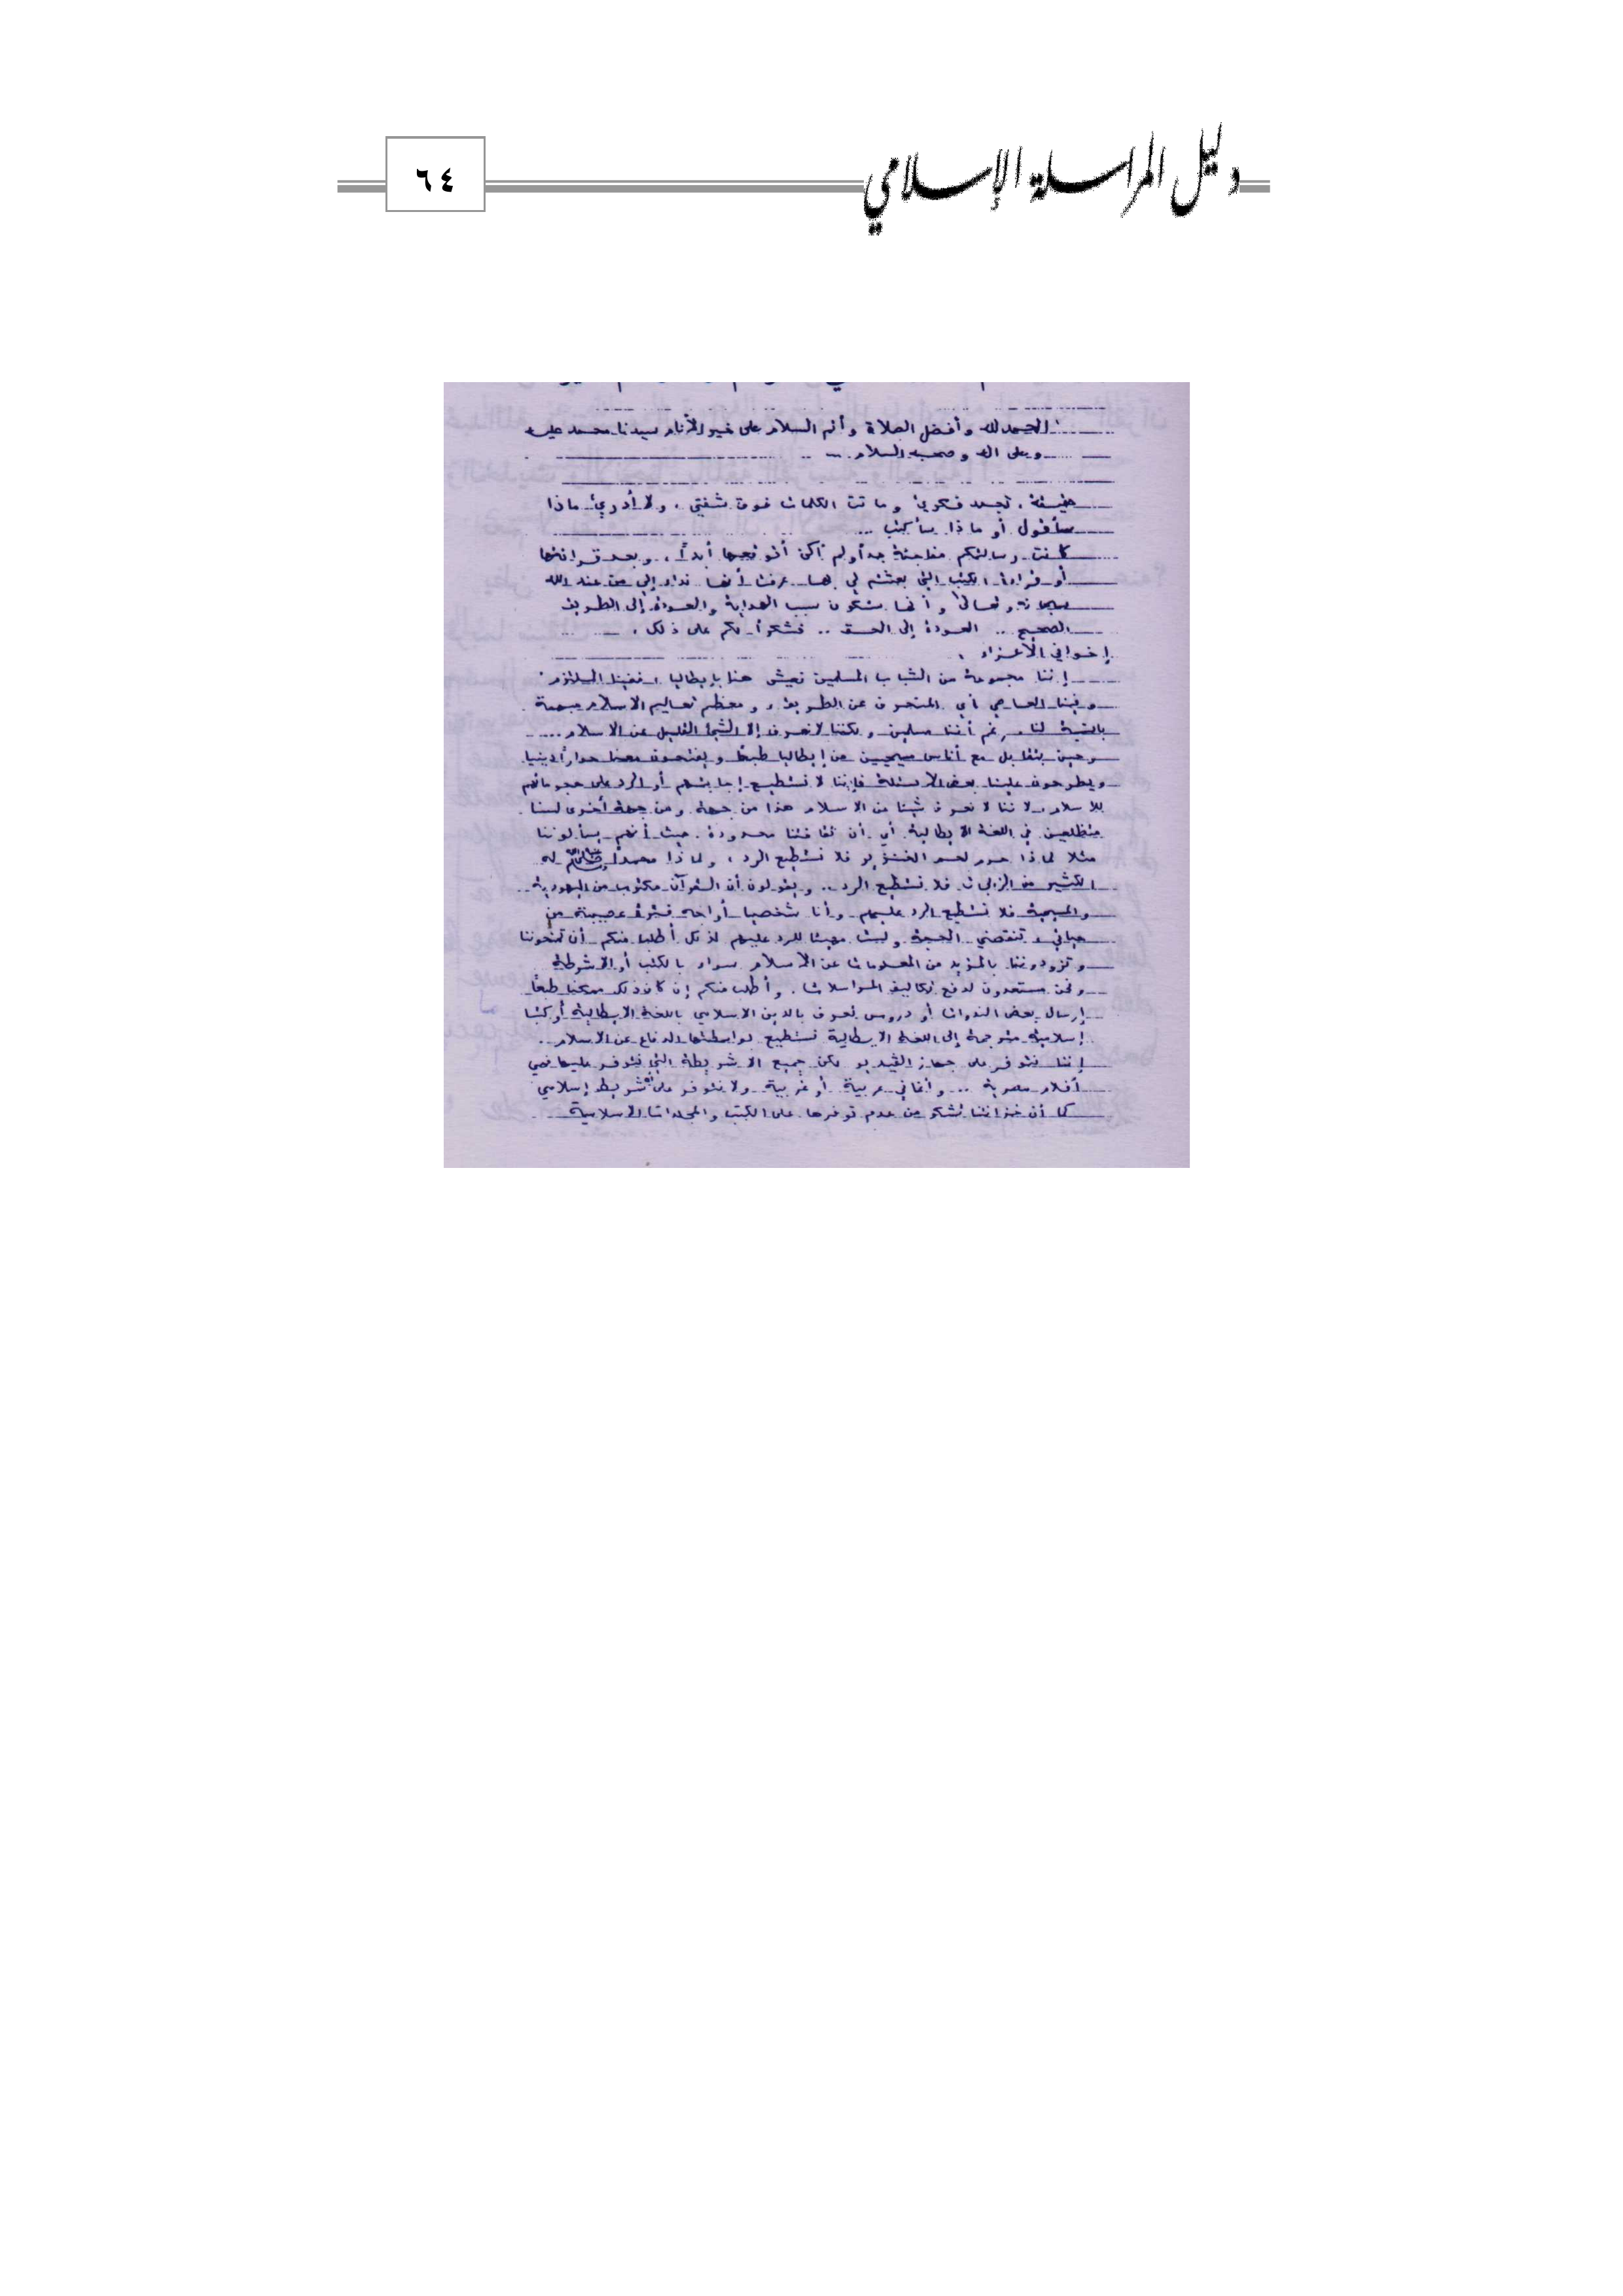 دليل المراسلة الإسلامي
٦٤
الحمد لله وأفضل الصلاة وأتم السلام على خير الأنام سيدنا محمد عليه
وعلى آله وصحبه السلام ...
حقيقة، تجمد فكري وماتت الكلمات فوق شفتي، ولا أدري ماذا
سأقول أو ماذا سأكتب ...
كانت رسالتكم مفاجئة جداً ولم أكن أتوقعها أبداً، وبعد قراءتها
أو قراءة الكتب التي بعثتم لي بها عرفت أنها نداء إلي من عند الله
سبحانه وتعالى وأنها ستكون سبب الهداية والعودة إلى الطريق
الصحيح .. العودة إلى الحق .. فشكراً لكم على ذلك.
إخواني الأعزاء،
إننا مجموعة من الشباب المسلمين نعيش هنا بإيطاليا، ففينا الملتزم
وفينا العاصي أي المنحرف عن الطريق، ومعظم تعاليم الاسلام مبهمة
بالنسبة لنا رغم أننا مسلمين ولكننا لا نعرف إلا الشيء القليل عن الاسلام ....
وحين نتقابل مع أناس مسيحيين من إيطاليا طبعا ويفتحون معنا حواراً دينيا
ويطرحون علينا بعض الاسئلة فإننا لا نستطيع إجابتهم أو الرد على هجوماتهم
للاسلام، لاننا لا نعرف شيئا من الاسلام هذا من جهة، ومن جهة أخرى لسنا
متطلعين في اللغة الايطالية أي أن ثقافتنا محدودة. حيث أنهم يسألوننا
مثلا لماذا حرم لحم الخنزير فلا نستطيع الرد، ولماذا محمداً ﷺ له
الكثير من الزيجات فلا نستطيع الرد .. ويقولون أن القرآن مكتوب من اليهودية
والمسيحية فلا نستطيع الرد عليهم وأنا شخصيا أواجه فترة عصيبة من
حياتي، تنقصني الحجة ولست مهيئا للرد عليهم لذلك أطلب منكم أن تمنحوننا
وتزودوننا بالمزيد من المعلومات عن الاسلام سواء بالكتب أو الاشرطة
ونحن مستعدون لدفع تكاليف المراسلات. وأطلب منكم إن كان ذلك ممكنا طبعاً
إرسال بعض الندوات أو دروس تعرف بالدين الاسلامي باللغة الايطالية أو كتبا
إسلامية مترجمة إلى اللغة الايطالية نستطيع بواسطتها الدفاع عن الاسلام ..
إننا نتوفر على جهاز الفيديو لكن جميع الاشرطة التي نتوفر عليها فهي
أفلام مصرية ... وأغاني عربية أو غربية ولا نتوفر على شريط إسلامي
كما أن خزانتنا تشكو من عدم توفرها على الكتب والمجلدات الاسلامية